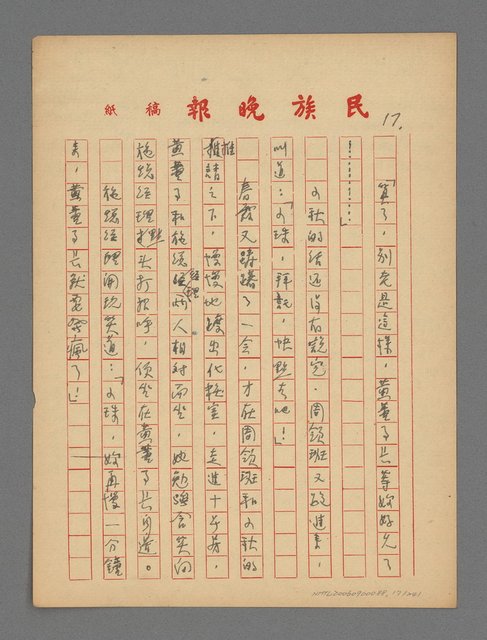 民族晚報 稿紙
17.
「算了,別老是這樣,黃董事長等妳好久了
…………」
的話還沒有說完,周領班又跑進來,
叫道:「小珠,拜託,快點去吧!」
春霞又躊躇了一會,才在周領班和小秋的
推請之下,慢慢地踱出化粧室,走進十号房,
黃董事和施總經理兩人相對而坐,她勉強含笑向
施總經理點頭打招呼,便坐在黃董事長身邊。
施總經理開玩笑道:「小珠,妳再慢一分鐘
來,黃董事長就要發瘋了!」
NMTL20060900088, 17/261